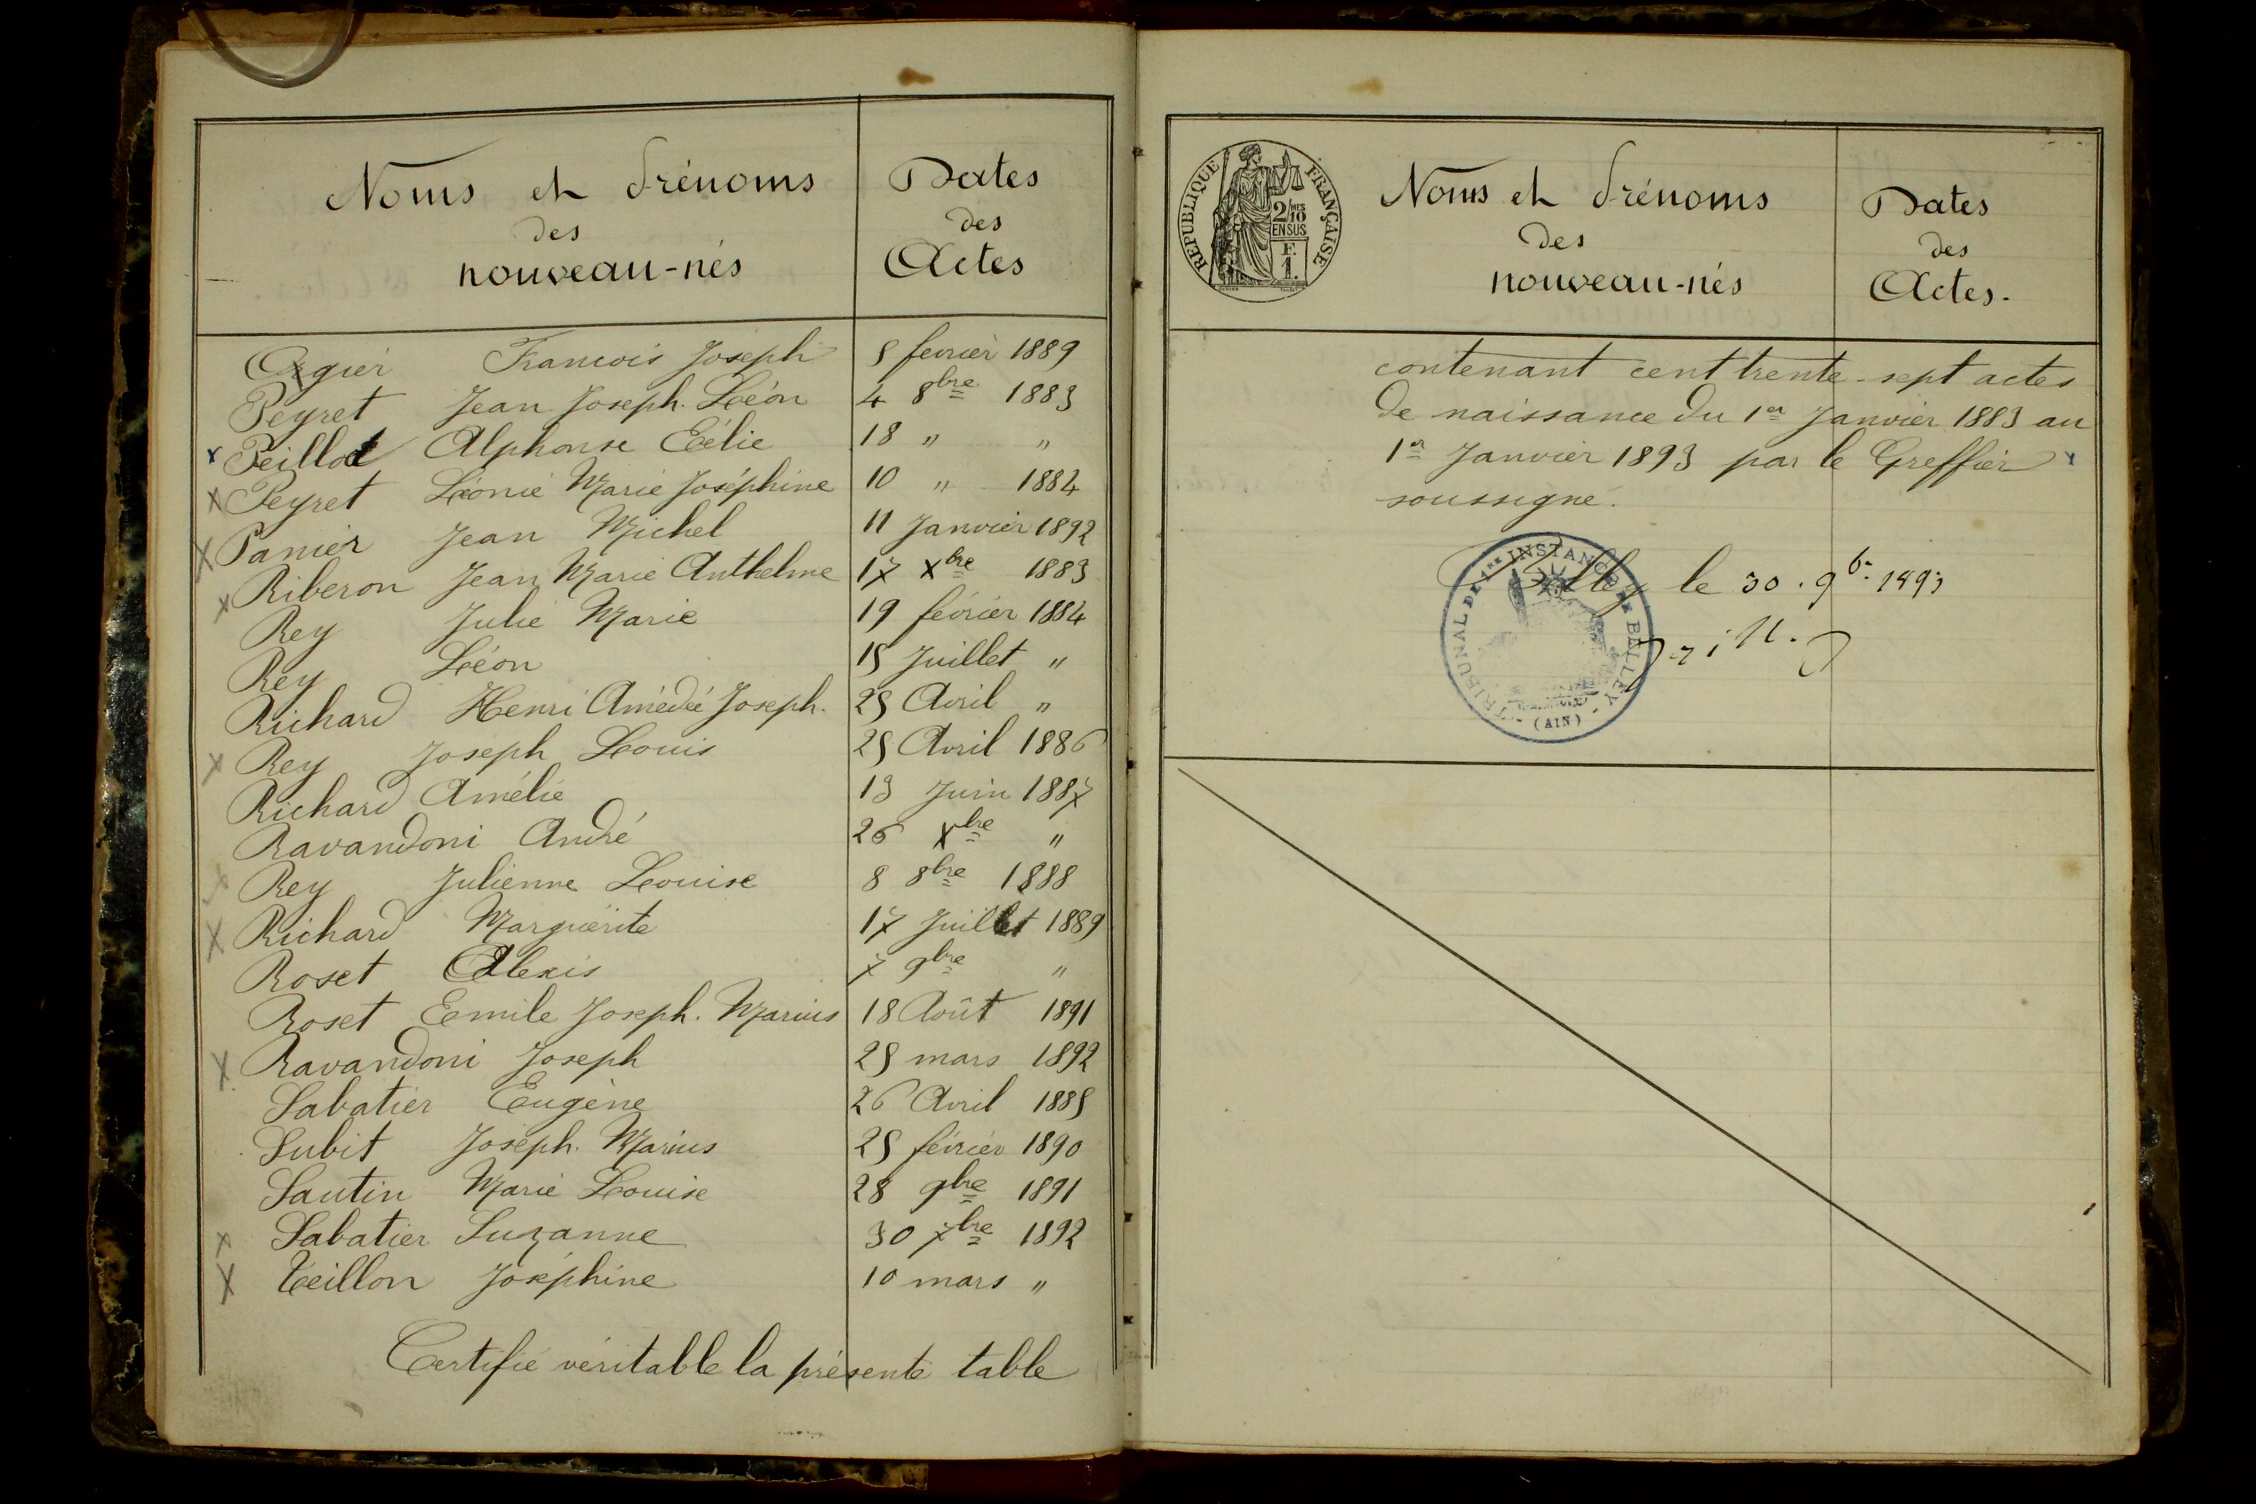 Noms et Prénoms
des
nouveau-nés
Dates
des
Actes
Ogier François Joseph 5 fevrier 1889
Peyret Jean Joseph. Léon 4 8bre 1883
x Peillod Alphonse Elie 18 " "
x Peyret Léonie Marie Joséphine 10 " 1884
x Panier Jean Michel 11 Janvier 1892
Riberon Jean Marie Anthelme 17 Xbre 1883
x Rey Julie Marie 19 février 1884
Rey Léon 15 Juillet "
Richard Henri Amédée Joseph. 25 Avril "
x Rey Joseph Louis 25 Avril 1886
Richard Amélie 13 Juin 1887
Ravandoni André 26 Xbre "
x Rey Julienne Louise 8 8bre 1888
x Richard Marguerite 17 Juillet 1889
Roset Alexis 7 9bre "
Roset Emile Joseph. Marius 18 Août 1891
x Ravandoni Joseph 25 mars 1892
Sabatier Eugène 26 Avril 1885
Subit Joseph. Marius 25 février 1890
Sautin Marie Louise 28 9bre 1891
x Sabatier Suzanne 30 7bre 1892
x Teillon Joséphine 10 mars "
Certifié véritable la présente table
REPUBLIQUE FRANÇAISE
2/10 MES
EN SUS
F.
1.
Noms et Prénoms
des
nouveau-nés
Dates
des
Actes.
contenant cent trente-sept actes
de naissance du 1er Janvier 1883 au
1er Janvier 1893 par le Greffier x
soussigné.
Belley le 30. 9b. 1893
TRIBUNAL DE 1RE INSTANCE DE BELLEY
(AIN)